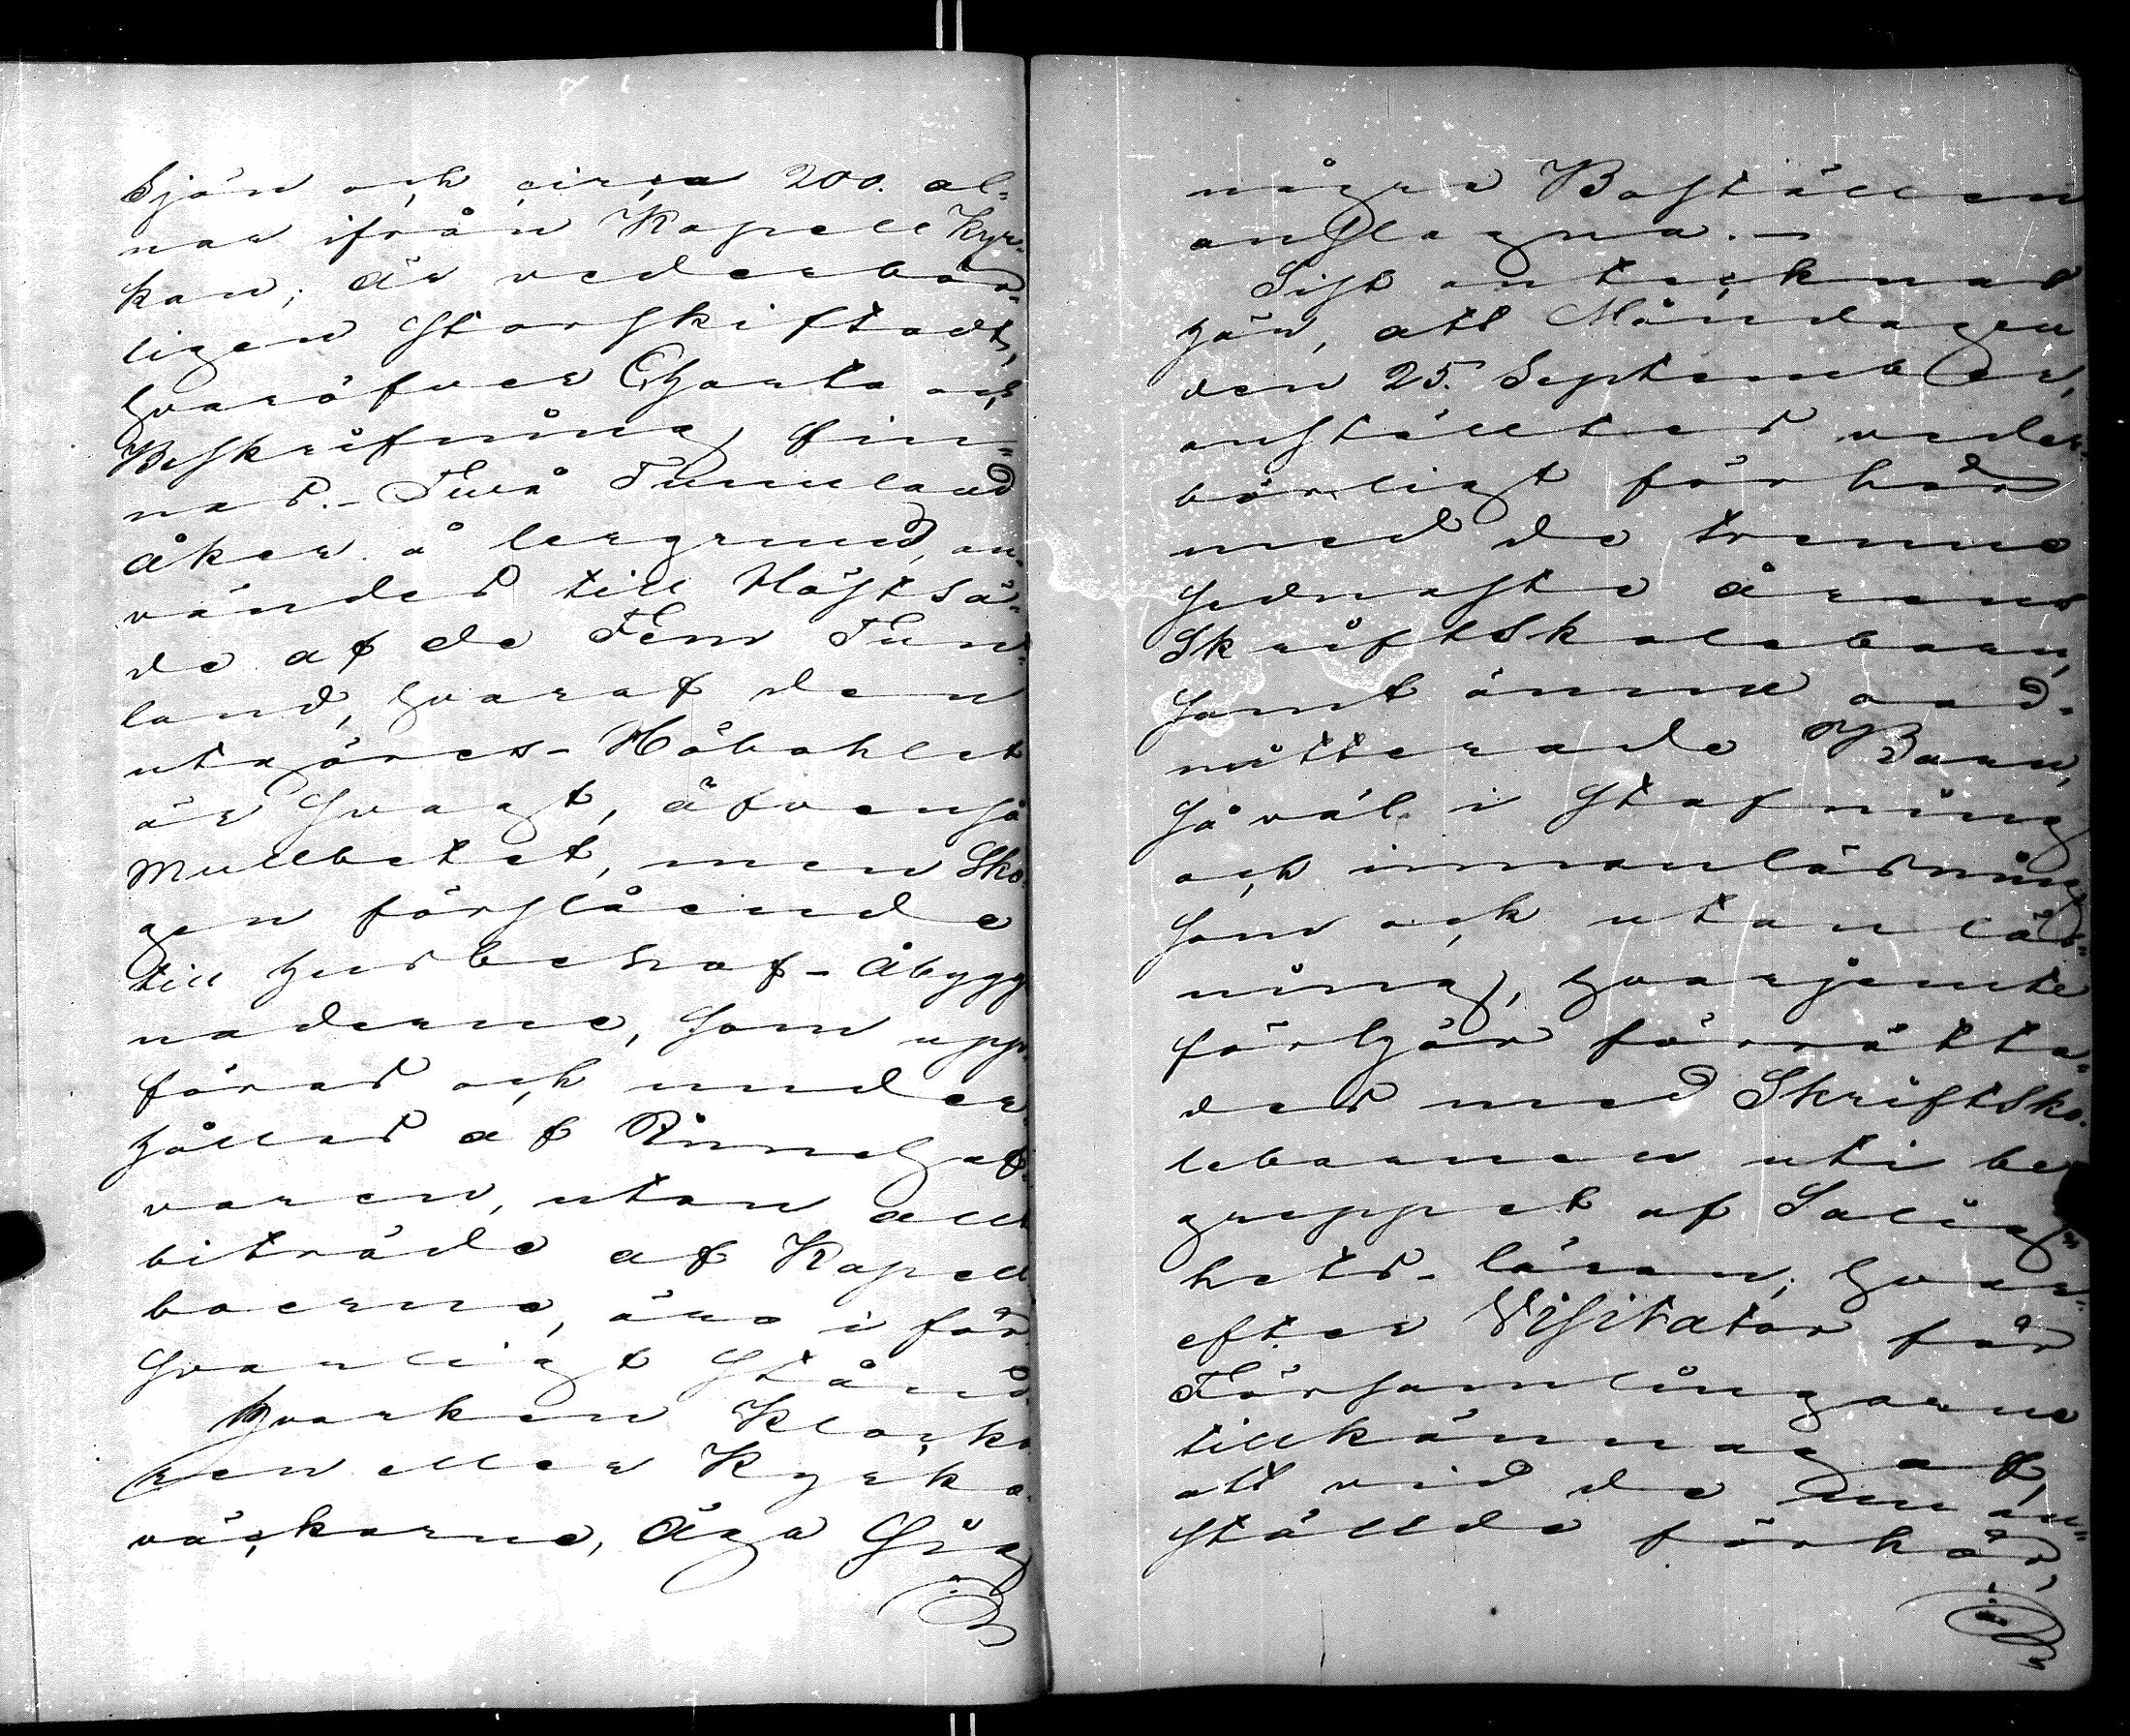 Sjön och circa 200. al=
nar ifrån Kapell Kyr=
kan; är vederbör=
ligen Storskiftadt,
hvaröfver Charta och
Beskrifning fin=
nas. - Tvåå Tunnland
åker å lergrund, an=
vändes till Höstsä=
de af de Fem Tun=
land, hvaraf den
utgöres - Höbohlet
är svagt, äfvenså
Mullbetet, men Sko=
gen förslående
till husbehof - Åbygg=
naderne, som upp=
föras och under=
hållas af Innehaf=
varen, utan allt
biträde af Kapell
boerne, äro i för=
svarligt Stånd.
Hvarken Klocka=
ren eller Kyrko=
väcktarne, Äga Sig
några Boställen
anslagna. -
Sist antecknas
här, att Måndagen
den 25. September,
anställtes veder=
börligt förhör
med de trenne
sednaste årens
Skriftskolebarn,
samt ännu oad=
mitterade Barn,
så väl i stafning
och innanläsning
som ock utanläs=
ning, hvarjemte
förhör förrätta=
des med Skriftsko=
lebarnen uti be=
greppet af Salig=
hets-läran; hvar=
efter Visitator för
Församlingarne
tillkännagaf,
att vid de nu an=
ställde förhör,